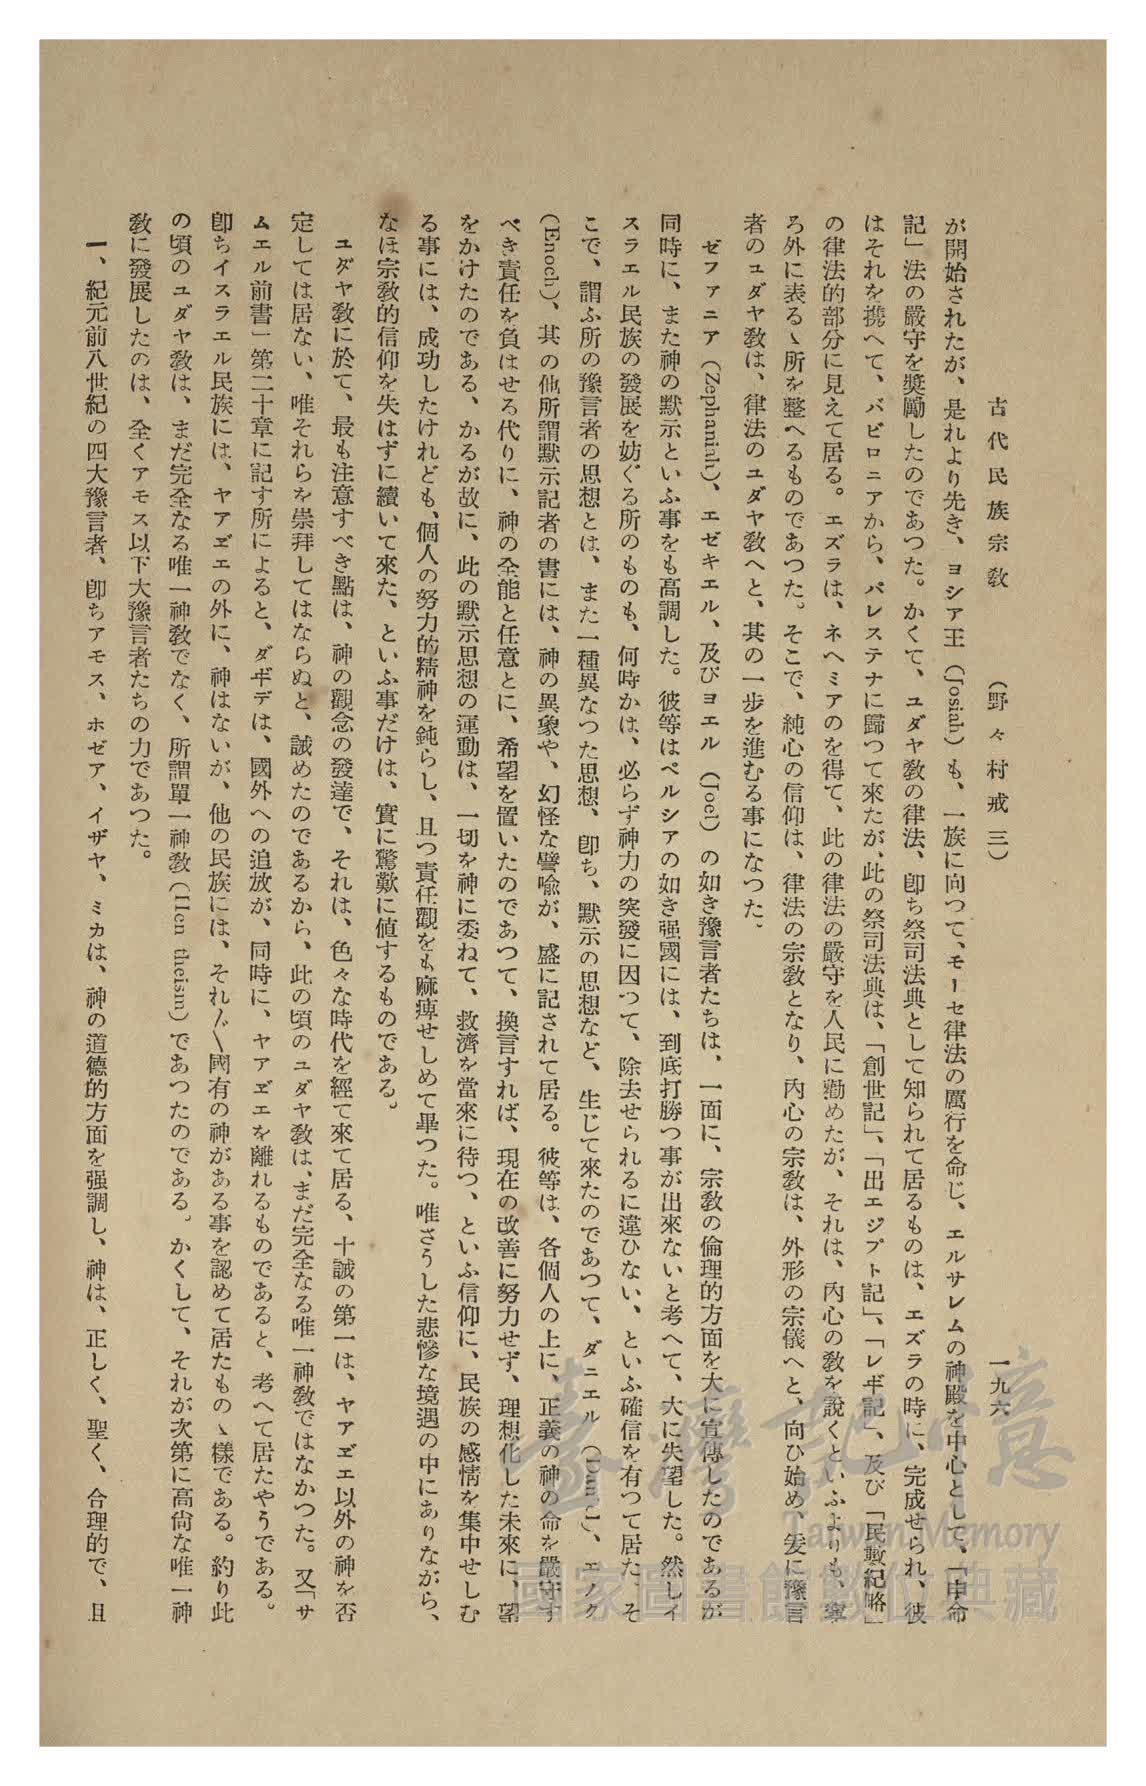 古代民族宗敎　（野々村戒三）　一九六
が開始されたが、是れより先き、ヨシア王（Josiah）も、一族に向つて、モーセ律法の厲行を命じ、エルサレムの神殿を中心として、「申命
記」法の嚴守を奬勵したのであつた。かくて、ユダヤ敎の律法、卽ち祭司法典として知られて居るものは、エズラの時に、完成せられ、彼
はそれを携へて、バビロニアから、パレステナに歸つて來たが、此の祭司法典は、「創世記」、「出エジプト記」、「レギ記」、及び「民數紀略」
の律法的部分に見えて居る。エズラは、ネヘミアのを得て、此の律法の嚴守を人民に勸めたが、それは、內心の敎を說くといふよりも、寧
ろ外に表るゝ所を整へるものであつた。そこで、純心の信仰は、律法の宗敎となり、內心の宗敎は、外形の宗儀へと、向ひ始め、爰に豫言
者のユダヤ敎は、律法のユダヤ敎へと、其の一步を進むる事になつた。
ゼファニア（Zephaniah）、エゼキエル、及びヨエル（Joel）の如き豫言者たちは、一面に、宗敎の倫理的方面を大に宣傳したのであるが
同時に、また神の默示といふ事をも高調した。彼等はペルシアの如き强國には、到底打勝つ事が出來ないと考へて、大に失望した。然しイ
スラエル民族の發展を妨ぐる所のものも、何時かは、必らず神力の突發に因つて、除去せられるに違ひない、といふ確信を有つて居た。そ
こで、謂ふ所の豫言者の思想とは、また一種異なつた思想、卽ち、默示の思想など、生じて來たのであつて、ダニエル（Daniel）、エノク
（Enoch）、其の他所謂默示記者の書には、神の異象や、幻怪な譬喩が、盛に記されて居る。彼等は、各個人の上に、正義の神の命を嚴守す
べき責任を負はせろ代りに、神の全能と任意とに、希望を置いたのであつて、換言すれば、現在の改善に努力せず、理想化した未來に、望
をかけたのである、かるが故に、此の默示思想の運動は、一切を神に委ねて、救濟を當來に待つ、といふ信仰に、民族の感情を集中せしむ
る事には、成功したけれども、個人の努力的精神を鈍らし、且つ責任觀をも麻痺せしめて畢つた。唯さうした悲慘な境遇の中にありながら、
なほ宗敎的信仰を失はずに續いて來た、といふ事だけは、實に驚歎に値するものである。
ユダヤ敎に於て、最も注意すべき點は、神の觀念の發達で、それは、色々な時代を經て來て居る、十誡の第一は、ヤアヹエ以外の神を否
定しては居ない、唯それらを崇拜してはならぬと、誡めたのであるから、此の頃のユダヤ敎は、まだ完全なる唯一神敎ではなかつた。又「サ
ムエル前書」第二十章に記す所によると、ダヸデは、國外への追放が、同時に、ヤアヹエを離れるものであると、考へて居たやうである。
卽ちイスラエル民族には、ヤアヹエの外に、神はないが、他の民族には、それ〴〵國有の神がある事を認めて居たものゝ樣である。約り此
の頃のユダヤ敎は、まだ完全なる唯一神敎でなく、所謂單一神敎（Hen theism）であつたのである。かくして、それが次第に高尙な唯一神
敎に發展したのは、全くアモス以下大豫言者たちの力であつた。
一、紀元前八世紀の四大豫言者、卽ちアモス、ホゼア、イザヤ、ミカは、神の道德的方面を强調し、神は、正しく、聖く、合理的で、且
臺灣記憶
Taiwan Memory
國家圖書館數位典藏